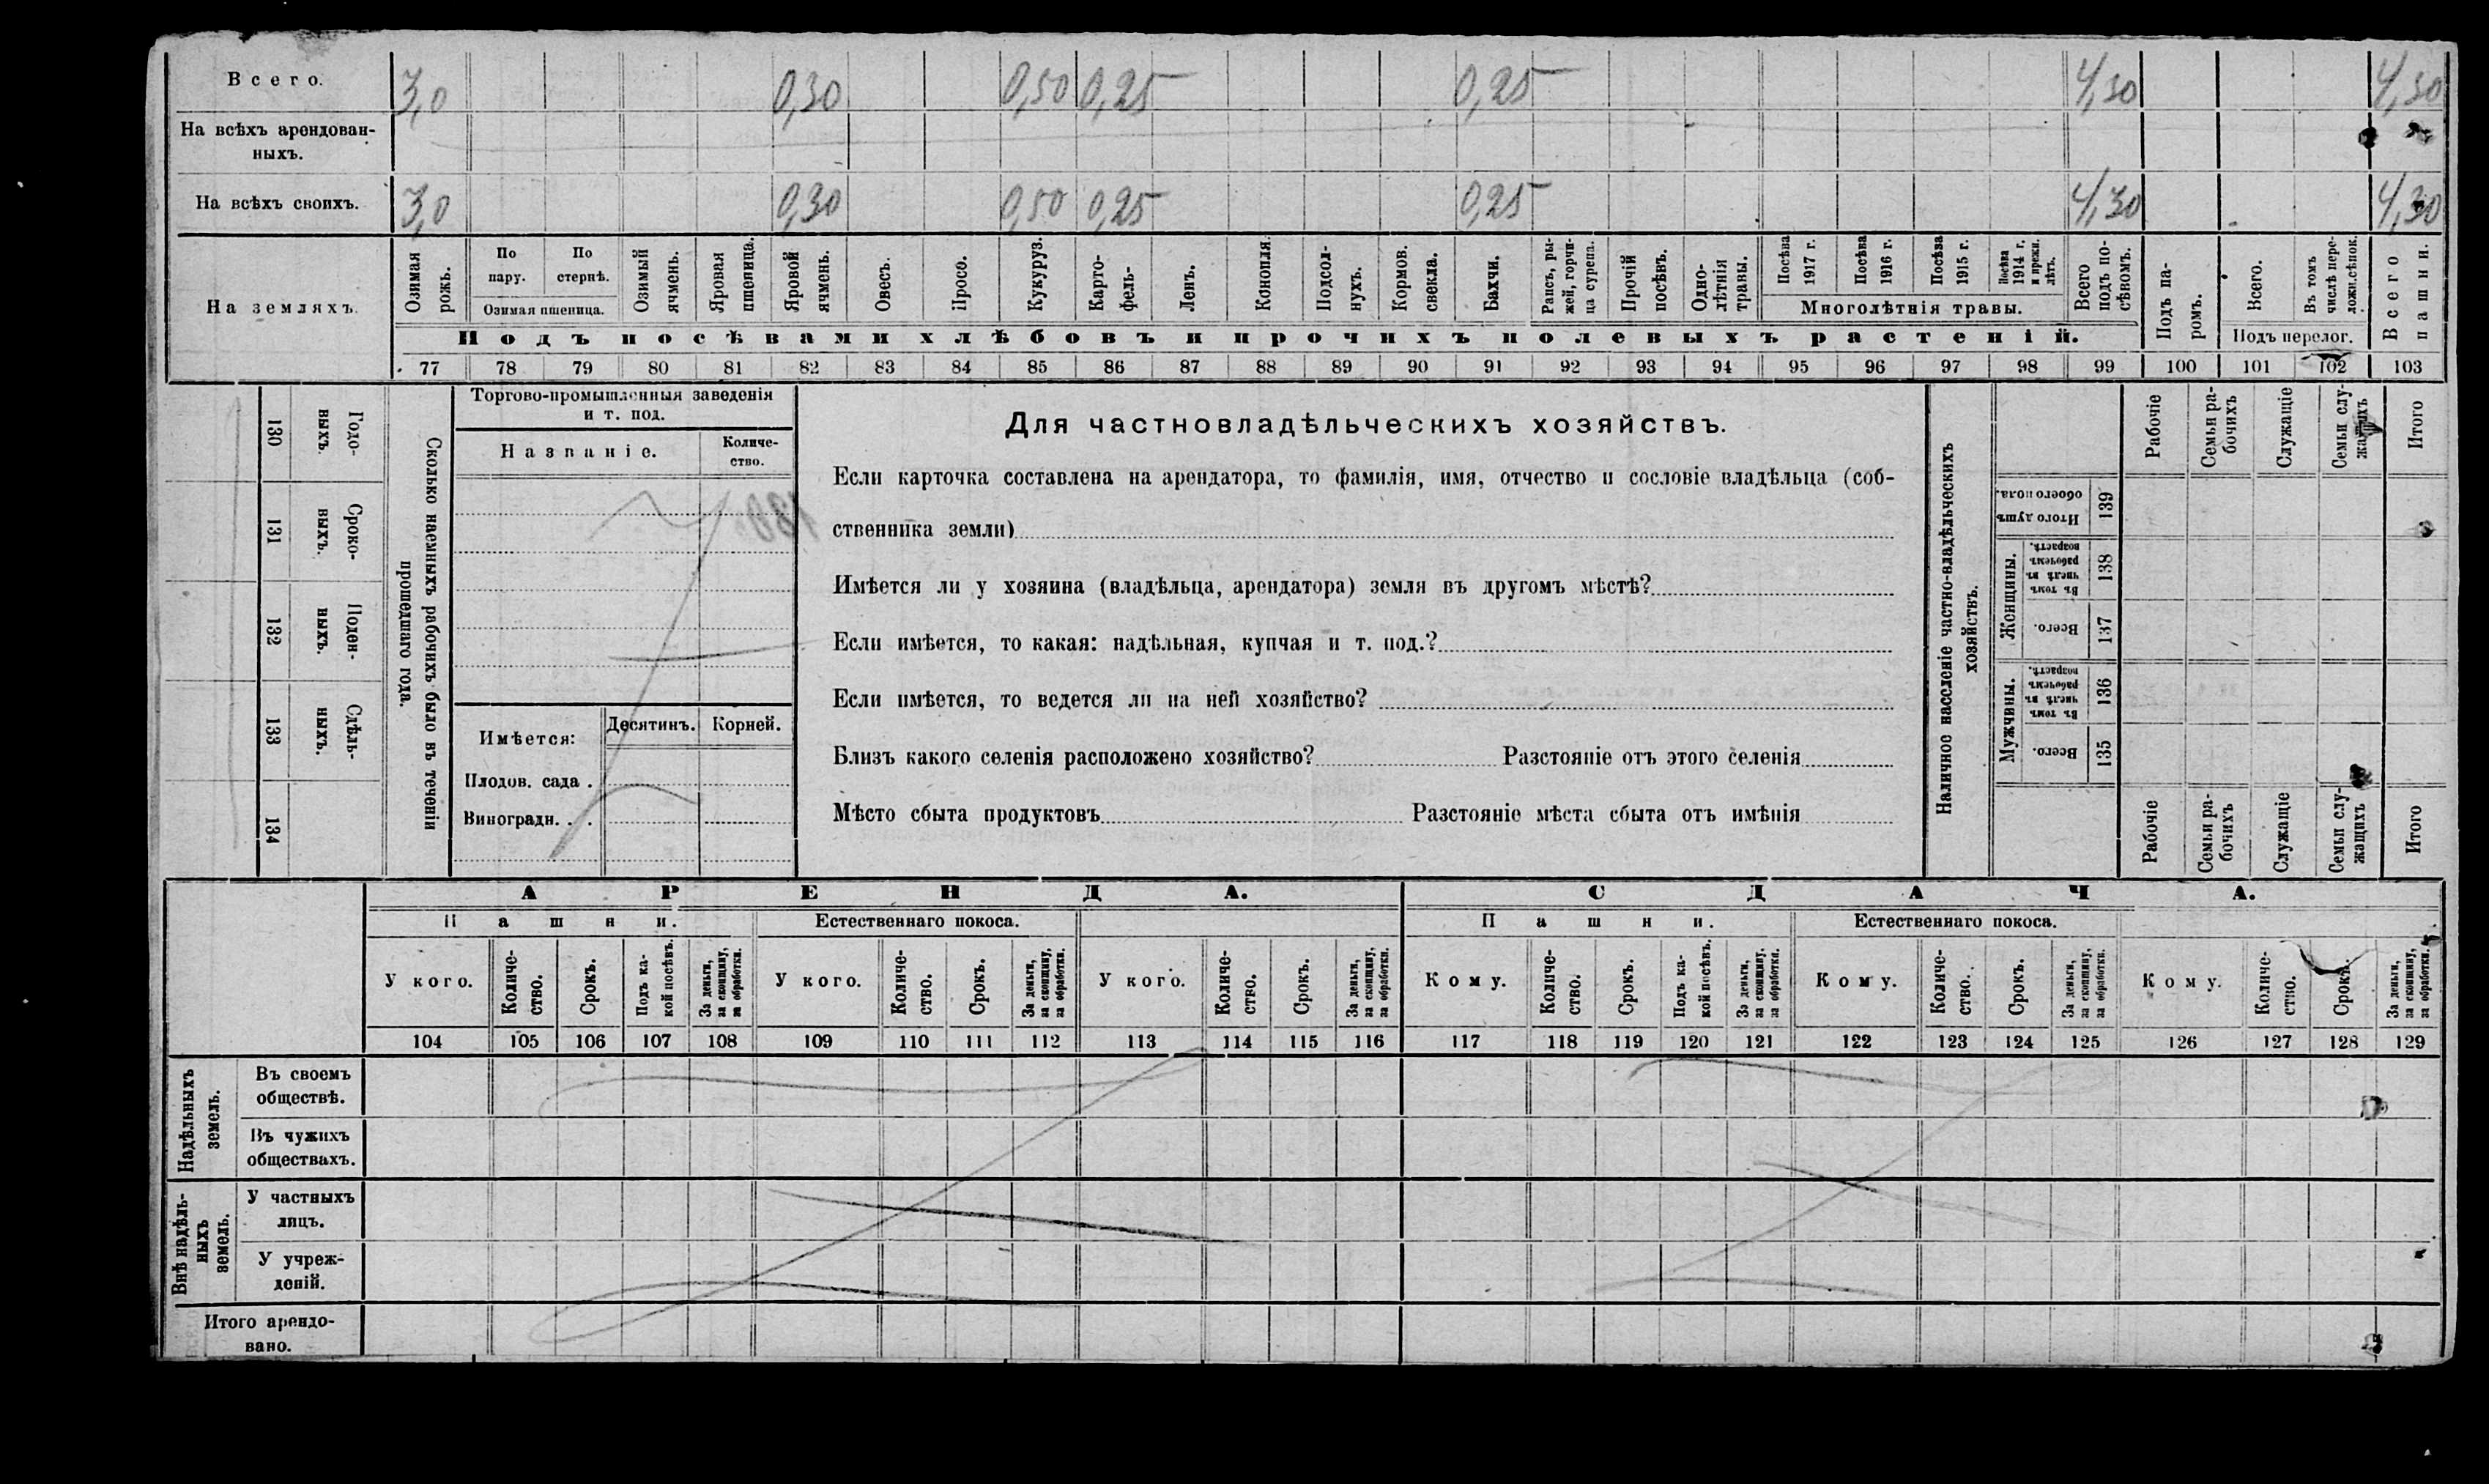 Всего. 3,0 0,30 0,50 0,25 0,25 4,30 4,30
На всѣхъ арендован-
ныхъ.
На всѣхъ своихъ. 3,0 0,30 0,50 0,25 0,25 4,30 4,30
На земляхъ.
Озимая рожь.
По пару.
По стернѣ.
Озимая пшеница.
Озимый ячмень.
Яровая пшеница.
Яровой ячмень.
Овесъ.
Просо.
Кукуруз.
Карто-
фель-
Ленъ.
Конопля.
Подсол-
нухъ.
Кормов. свекла.
Бахчи.
Рапсъ, ры-
жей, горчи-
ца сурепа.
Прочій посѣвъ.
Одно-
лѣтнія травы.
Посѣва 1917 г.
Посѣва 1916 г.
Посѣва 1915 г.
Посѣва 1914 г. и прежн. лѣтъ.
Многолѣтнія травы.
Всего подъ по-
сѣвомъ.
Подъ па-
ромъ.
Всего.
Въ томъ числѣ пере-
ложн.сѣнок.
Подъ перелог.
Всего пашни.
Подъ посѣвами хлѣбовъ и прочихъ полевыхъ растеній.
77 78 79 80 81 82 83 84 85 86 87 88 89 90 91 92 93 94 95 96 97 98 99 100 101 102 103
Сколько наемныхъ рабочихъ было въ теченіи
прошедшаго года.
Годо-
выхъ.
130
Сроко-
выхъ.
131
Поден-
ныхъ.
132
Сдѣль-
ныхъ.
133
134
Торгово-промышленныя заведенія
и т. под.
Названіе.
Количе-
ство.
Имѣется:
Десятинъ. Корней.
Плодов. сада .
Виноградн. . .
Для частновладѣльческихъ хозяйствъ.
Если карточка составлена на арендатора, то фамилія, имя, отчество и сословіе владѣльца (соб-
ственника земли)
Имѣется ли у хозяина (владѣльца, арендатора) земля въ другомъ мѣстѣ?
Если имѣется, то какая: надѣльная, купчая и т. под.?
Если имѣется, то ведется ли на ней хозяйство?
Близъ какого селенія расположено хозяйство? Разстояніе отъ этого селенія
Мѣсто сбыта продуктовъ Разстояніе мѣста сбыта отъ имѣнія
Наличное населеніе частно-владѣльческихъ
хозяйствъ.
Рабочіе
Семьи ра-
бочихъ
Служащіе
Семьи слу-
жащихъ
Итого
Итого душъ
обоего пола.
139
Женщины.
Въ томъ числѣ въ рабочемъ возрастѣ.
138
Всего.
137
Мужчины.
Въ томъ числѣ въ рабочемъ возрастѣ.
136
Всего.
135
Рабочіе
Семьи ра-
бочихъ
Служащіе
Семьи слу-
жащихъ
Итого
АРЕНДА. СДАЧА.
Пашни. Естественнаго покоса. Пашни. Естественнаго покоса.
У кого.
Количе-
ство.
Срокъ.
Подъ ка-
кой посѣвъ.
За деньги,
за скопщину,
за обработки.
У кого.
Количе-
ство.
Срокъ.
За деньги,
за скопщину,
за обработки.
У кого.
Количе-
ство.
Срокъ.
За деньги,
за скопщину,
за обработки.
Кому.
Количе-
ство.
Срокъ.
Подъ ка-
кой посѣвъ.
За деньги,
за скопщину,
за обработки.
Кому.
Количе-
ство.
Срокъ.
За деньги,
за скопщину,
за обработки.
Кому.
Количе-
ство.
Срокъ.
За деньги,
за скопщину,
за обработки.
104 105 106 107 108 109 110 111 112 113 114 115 116 117 118 119 120 121 122 123 124 125 126 127 128 129
Надѣльныхъ
земель.
Въ своемъ
обществѣ.
Въ чужихъ
обществахъ.
Внѣ надѣль-
ныхъ
земель.
У частныхъ
лицъ.
У учреж-
деній.
Итого арендо-
вано.